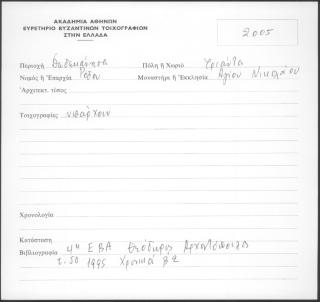 ΑΚΑΔΗΜΙΑ ΑΘΗΝΩΝ
ΕΥΡΕΤΗΡΙΟ ΒΥΖΑΝΤΙΝΩΝ ΤΟΙΧΟΓΡΑΦΙΩΝ
ΣΤΗΝ ΕΛΛΑΔΑ
2005
Περιοχή Δωδεκάνησα Πόλη ἤ Χωριό Τριάντα
Νομός ἤ Ἐπαρχία Ρόδου Μοναστήρι ἤ Ἐκκλησία Αγίου Νικολάου
Ἀρχιτεκτ. τύπος
Τοιχογραφίες υπάρχουν
Χρονολογία
Κατάσταση
Βιβλιογραφία 4η ΕΒΑ Θεόδωρος Αρχοντόπουλος
τ. 50 1995 Χρονικά Β2